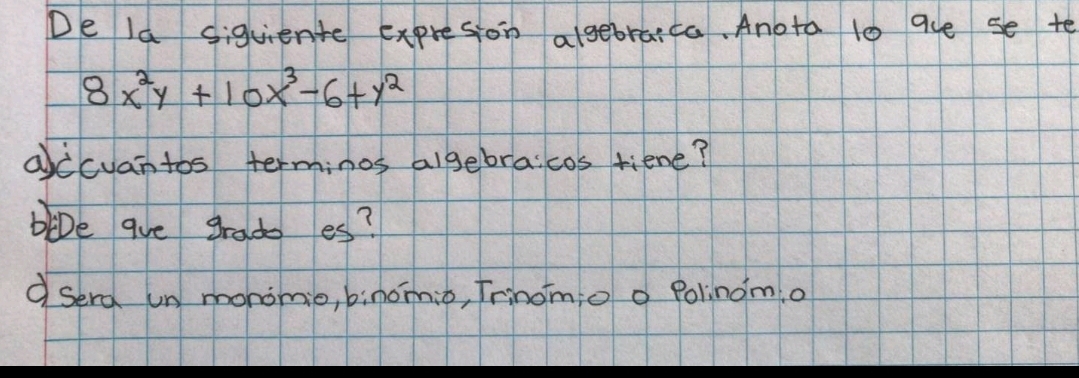 De la siguiente expresión algebraica. Anota lo que se te
8x²y + 10x³-6+y²
a)¿cuántos terminos algebraicos tiene?
b)¿De que grado es?
c) Sera un monómio, binómio, Trinómio o Polinómio